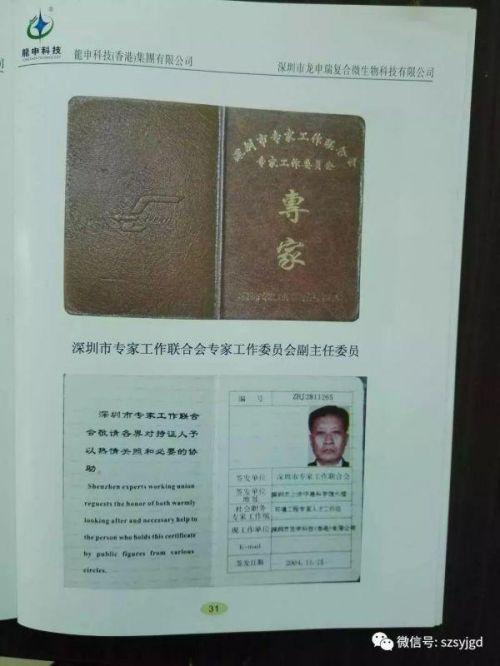 龍申科技
龍申科技(香港)集團有限公司
深圳市龙申瑞复合微生物科技有限公司
深圳市专家工作联合会
专家工作委员会
専家
深圳市专家工作联合会专家工作委员会副主任委员
深圳市专家工作联合
会敬请各界对持证人予
以热情关照和必要的协
助。
Shenzhen experts working union
reguests the honor of both warmly
looking after and necessary help to
the person who holds this certificate
by public figures from various
circles.
编号 ZHJ2811265
签发单位 深圳市专家工作联合会
签发单位
地址
社会职务
专家工作组 环境工程专家人才工作组
现工作单位
E-mail
签发日期 2004.11.25
31
微信号: szsyjgd